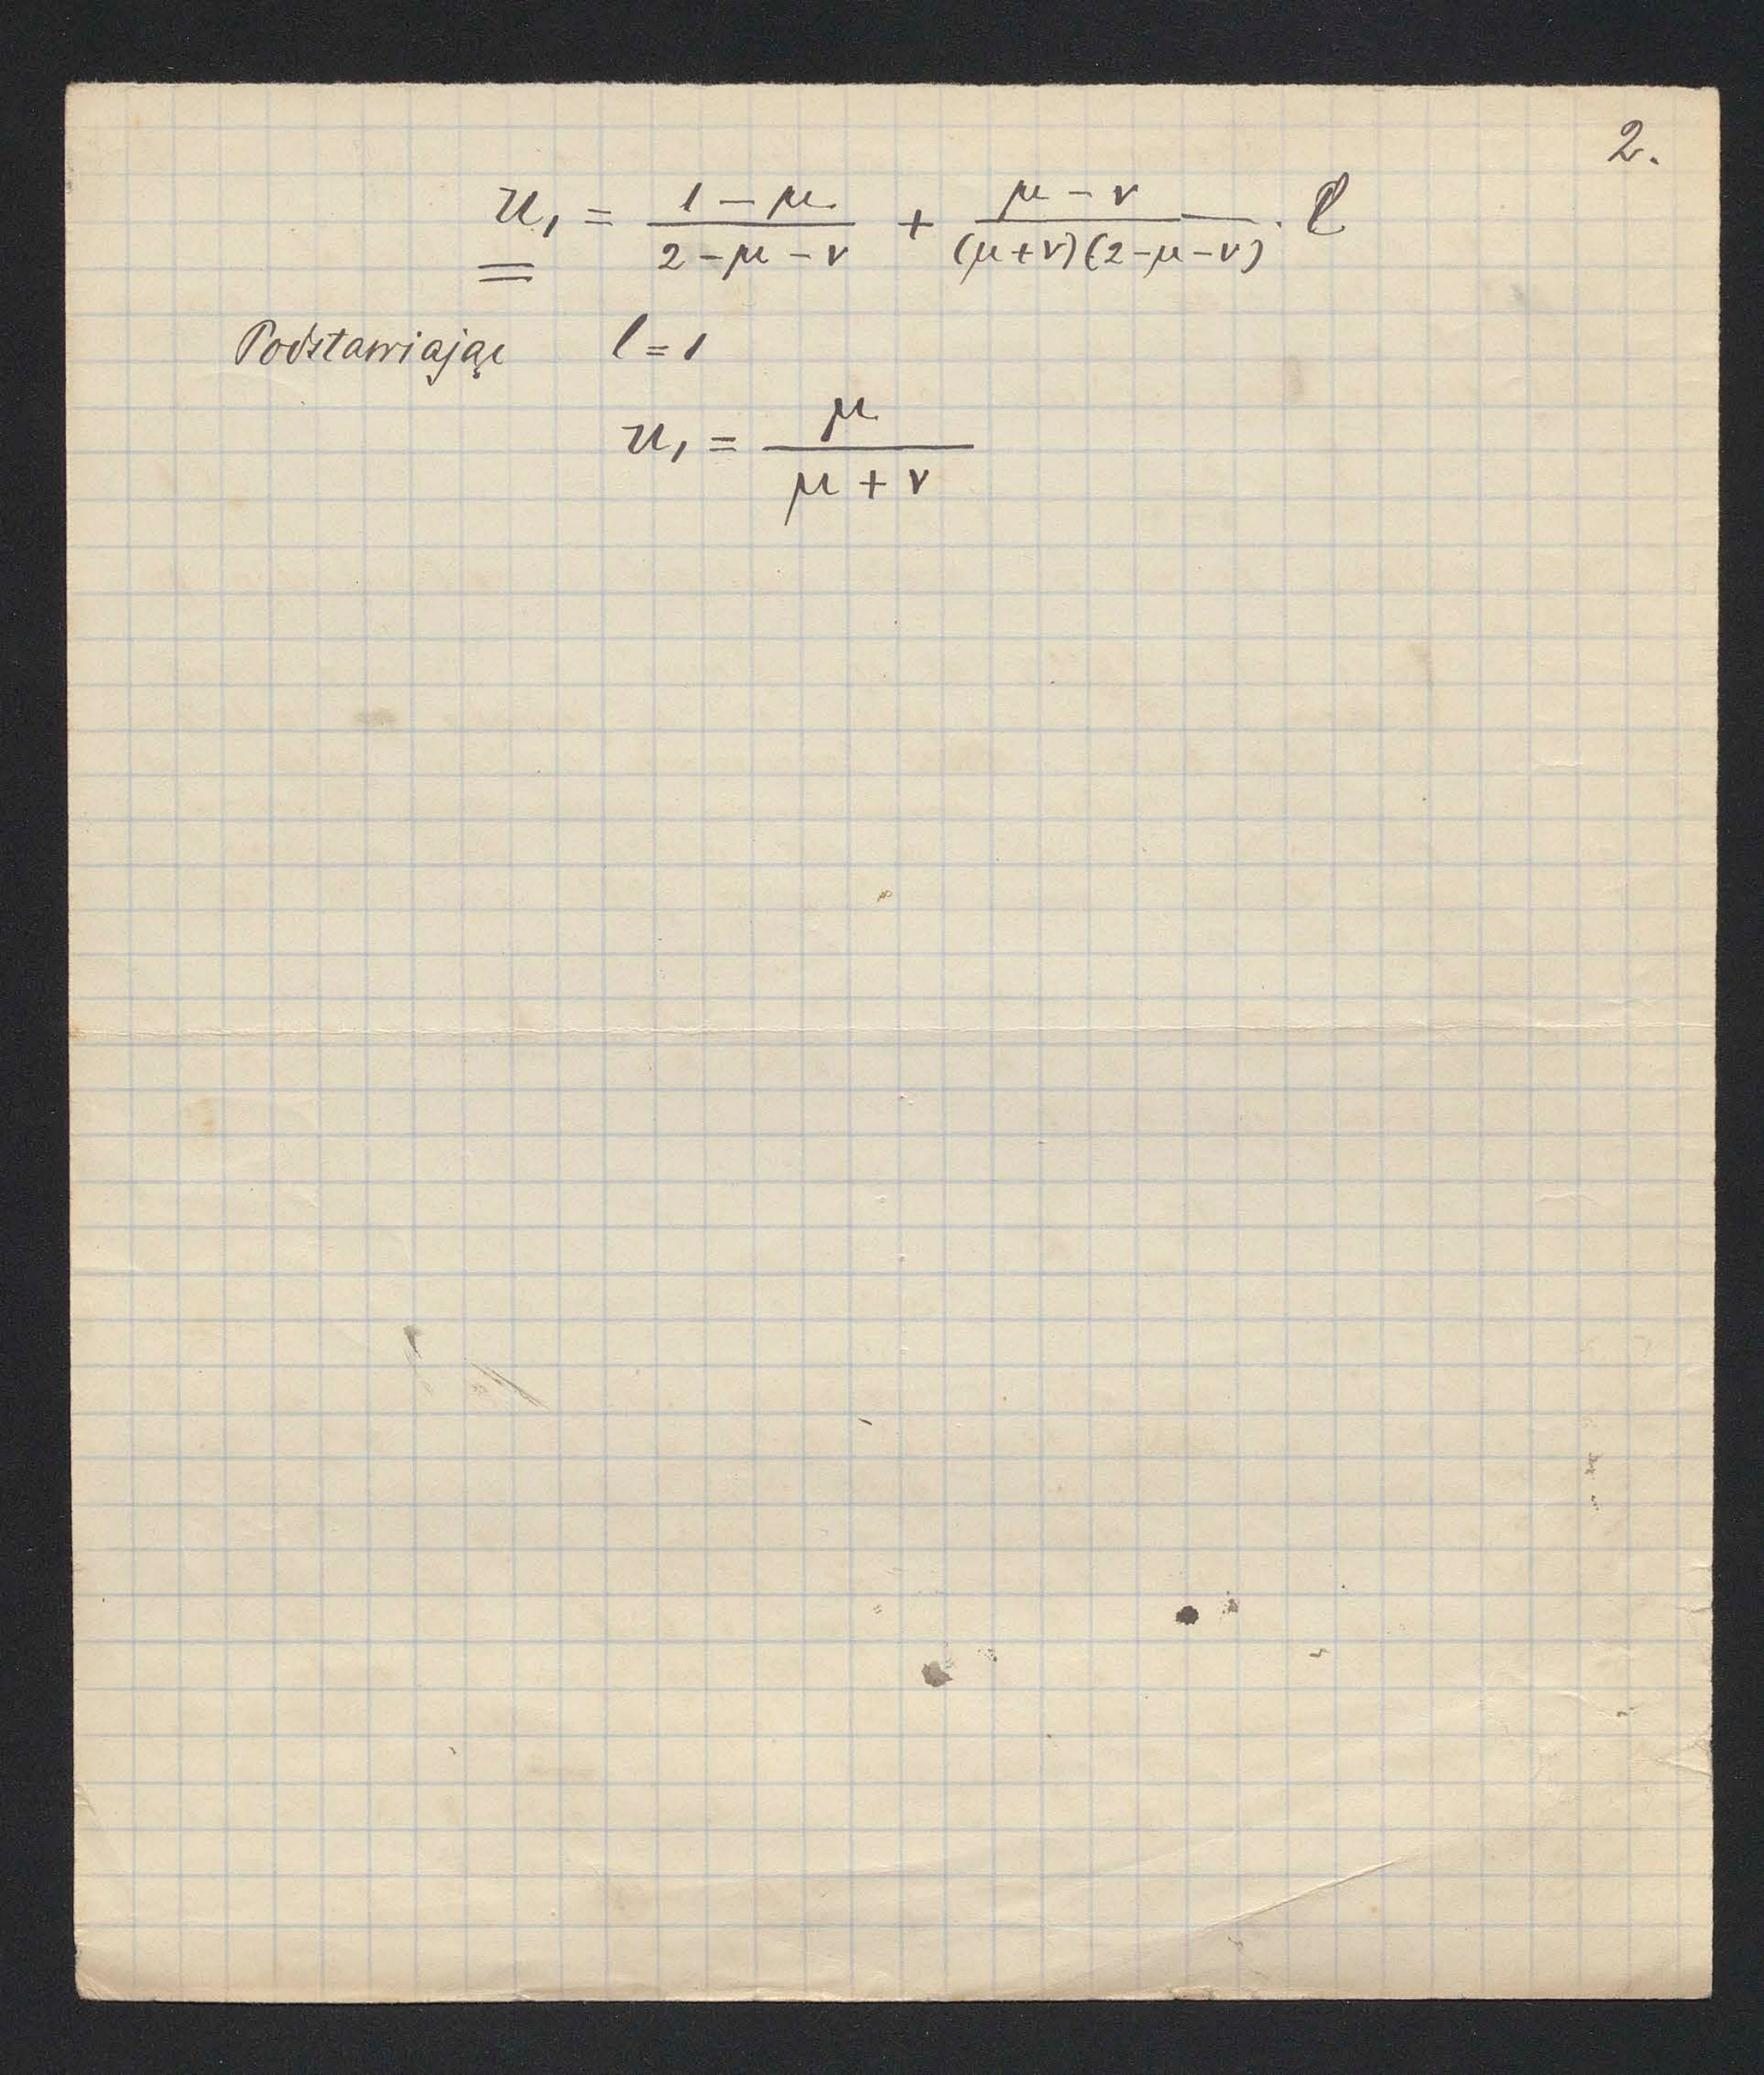 2.
u₁ = (1 − μ)/(2 − μ − ν) + (μ − ν)/((μ + ν)(2 − μ − ν)) · l
Podstawiając l = 1
u₁ = μ/(μ + ν)